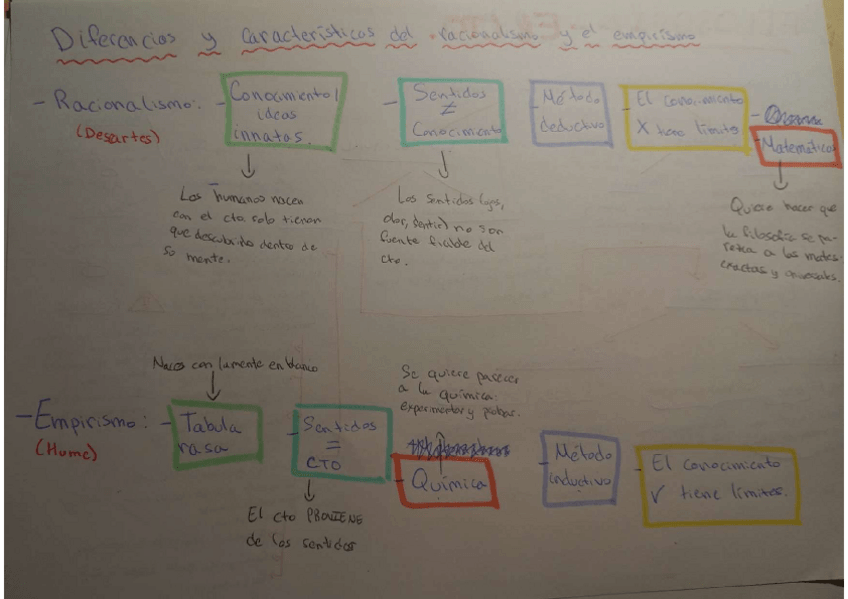 Diferencias y características del racionalismo y el empirismo
- Racionalismo:
(Descartes)
- Conocimiento/
ideas
innatas.
Los humanos nacen
con el cto solo tienen
que descubrirlo dentro de
su mente.
- Sentidos
≠
Conocimiento
Los sentidos (ojos,
olor, sentir) no son
fuente fiable del
cto.
- Método
deductivo
- El conocimiento
X tiene límite
- Matemáticas
Quiere hacer que
la filosofía se pa-
rezca a las mates.
exactas y universales.
- Empirismo:
(Hume)
Naces con la mente en blanco
- Tabula
rasa
- Sentidos
=
CTO
El cto PROVIENE
de los sentidos
Se quiere parecer
a la química:
experimentar y probar.
- Química
- Método
inductivo
- El conocimiento
✓ tiene límites.